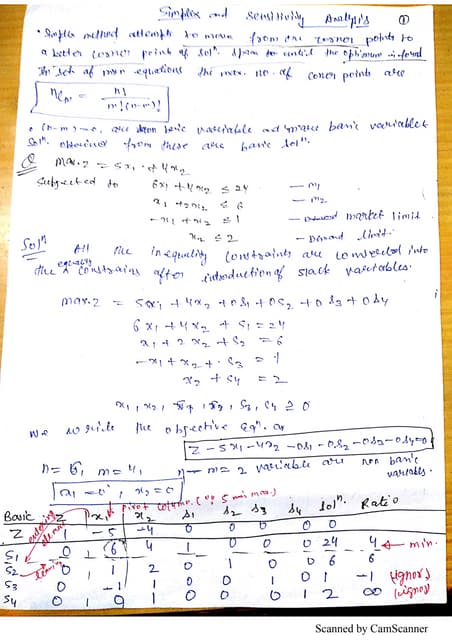 Simplex and Sensitivity Analysis ①
• Simplex method attempts to move from one corner points to
a better corner point of solⁿ. space to until the optimum is found
In set of mxn equations the max. no. of corner points are
nCm = n! / m!(n-m)!
• (n-m)=0, are non basic variable and m are basic variables
Solⁿ. obtained from these are basic solⁿ.
Q Max. Z = 5x1 + 4x2
Subjected to 6x1 + 4x2 ≤ 24 — m1
x1 + 2x2 ≤ 6 — m2
-x1 + x2 ≤ 1 — market limit
x2 ≤ 2 — Demand limit
Solⁿ All the inequality constraints are converted into
the equality constrains after introduction of slack variables.
Max. Z = 5x1 + 4x2 + 0s1 + 0s2 + 0s3 + 0s4
6x1 + 4x2 + s1 = 24
x1 + 2x2 + s2 = 6
-x1 + x2 + s3 = 1
x2 + s4 = 2
x1, x2, s1, s2, s3, s4 ≥ 0
We write the objective Eqⁿ. as
Z - 5x1 - 4x2 - 0s1 - 0s2 - 0s3 - 0s4 = 0
n = 6, m = 4, n - m = 2 variable are non basic
variables.
x1 = 0, x2 = 0
pivot column. (-5 min max.)
Basic Z x1 x2 s1 s2 s3 s4 Solⁿ. Ratio
entering element
Z 1 -5 -4 0 0 0 0 0
S1 0 6 4 1 0 0 0 24 4 ← min.
S2 0 1 2 0 1 0 0 6 6
S3 0 -1 1 0 0 1 0 1 -1 (ignor)
S4 0 0 1 0 0 0 1 2 ∞ (ignor)
Scanned by CamScanner